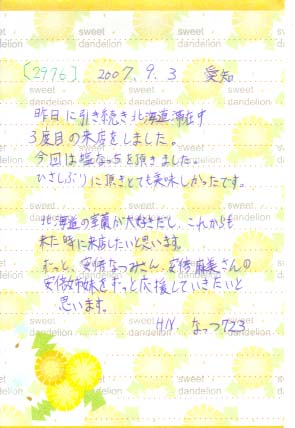 sweet dandelion sweet dandelion
[2976] 2007. 9. 3 愛知
昨日に引き続き北海道滞在中
3度目の来店をしました。
今回は塩なっちを頂きました。
ひさしぶりに頂きとても美味しかったです。
北海道の室蘭が大好きだし、これからも
来た時に来店したいと思います。
ずっと、安倍なつみさん、安倍麻美さんの
安倍姉妹をずっと応援していきたいと
思います。
H.N. なっつ723
sweet dandelion sweet dandelion